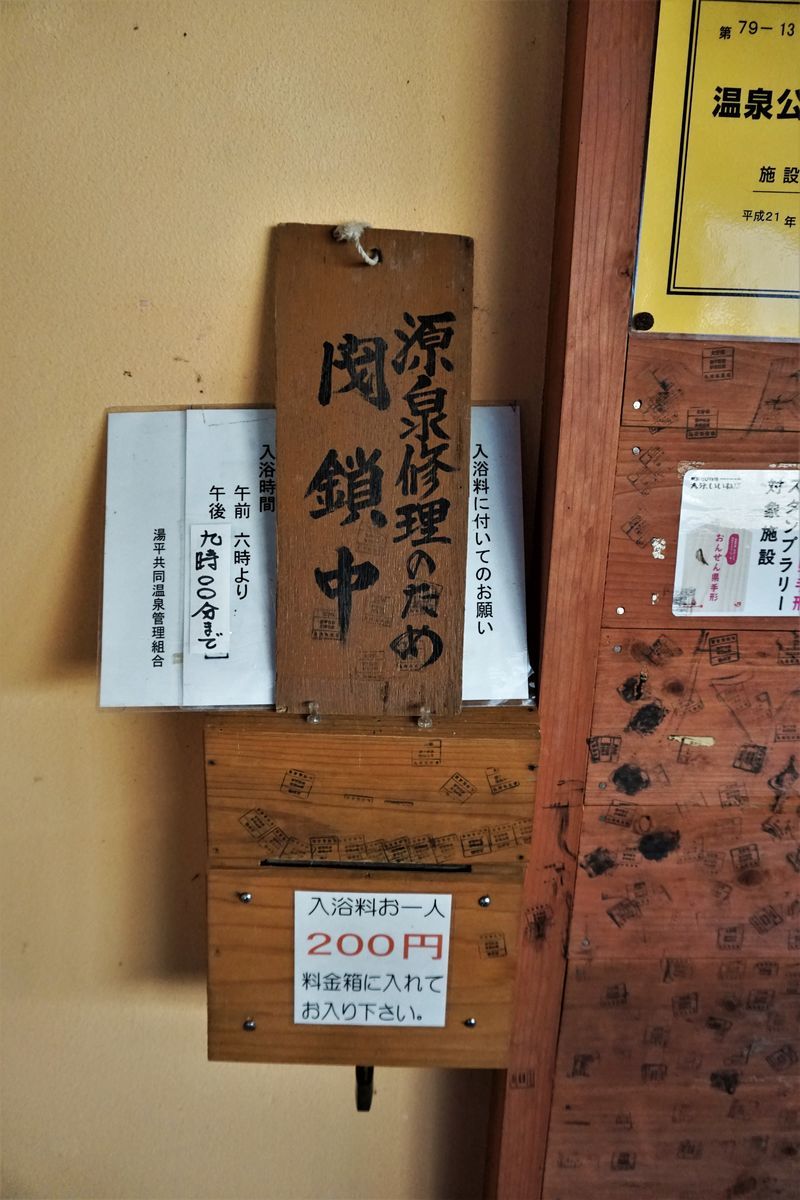 第79-13
温泉公
施設
平成21年
源泉修理のため
閉鎖中
入浴料に付いてのお願い
入浴時間
午前 六時より
午後 九時00分まで
湯平共同温泉管理組合
スタンプラリー
対象施設
おんせん県手形
入浴料お一人
200円
料金箱に入れて
お入り下さい。